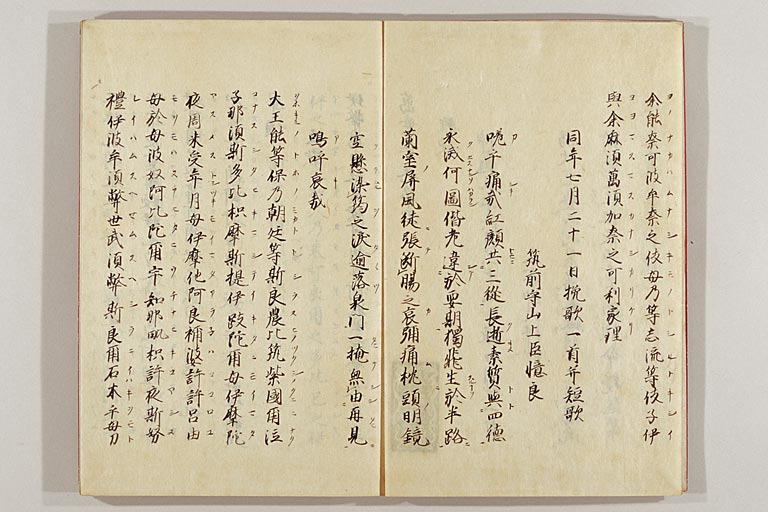 余能奈可波牟奈之伎母乃等志流等伎子伊
與余麻須萬須加奈之可利家理
同年七月二十一日挽歌一首并短歌
筑前守山上臣憶良
嗟乎痛哉紅顏共三從長逝素質與四德
永滅何圖偕老違於要期獨飛生於半路
蘭室屏風徒張斷腸之哀彌痛枕頭明鏡
空懸染筠之淚逾落泉門一掩無由再見
嗚呼哀哉
大王能等保乃朝廷等斯良農比筑紫國爾泣
子那須斯多比枳摩斯提伊跂陀爾母伊摩陀
夜周米受年月母伊摩他阿良禰婆許許呂由
母於母波奴阿比陀爾宇知那毗枳許夜斯努
禮伊波牟須弊世武須弊斯良爾石木乎母刀